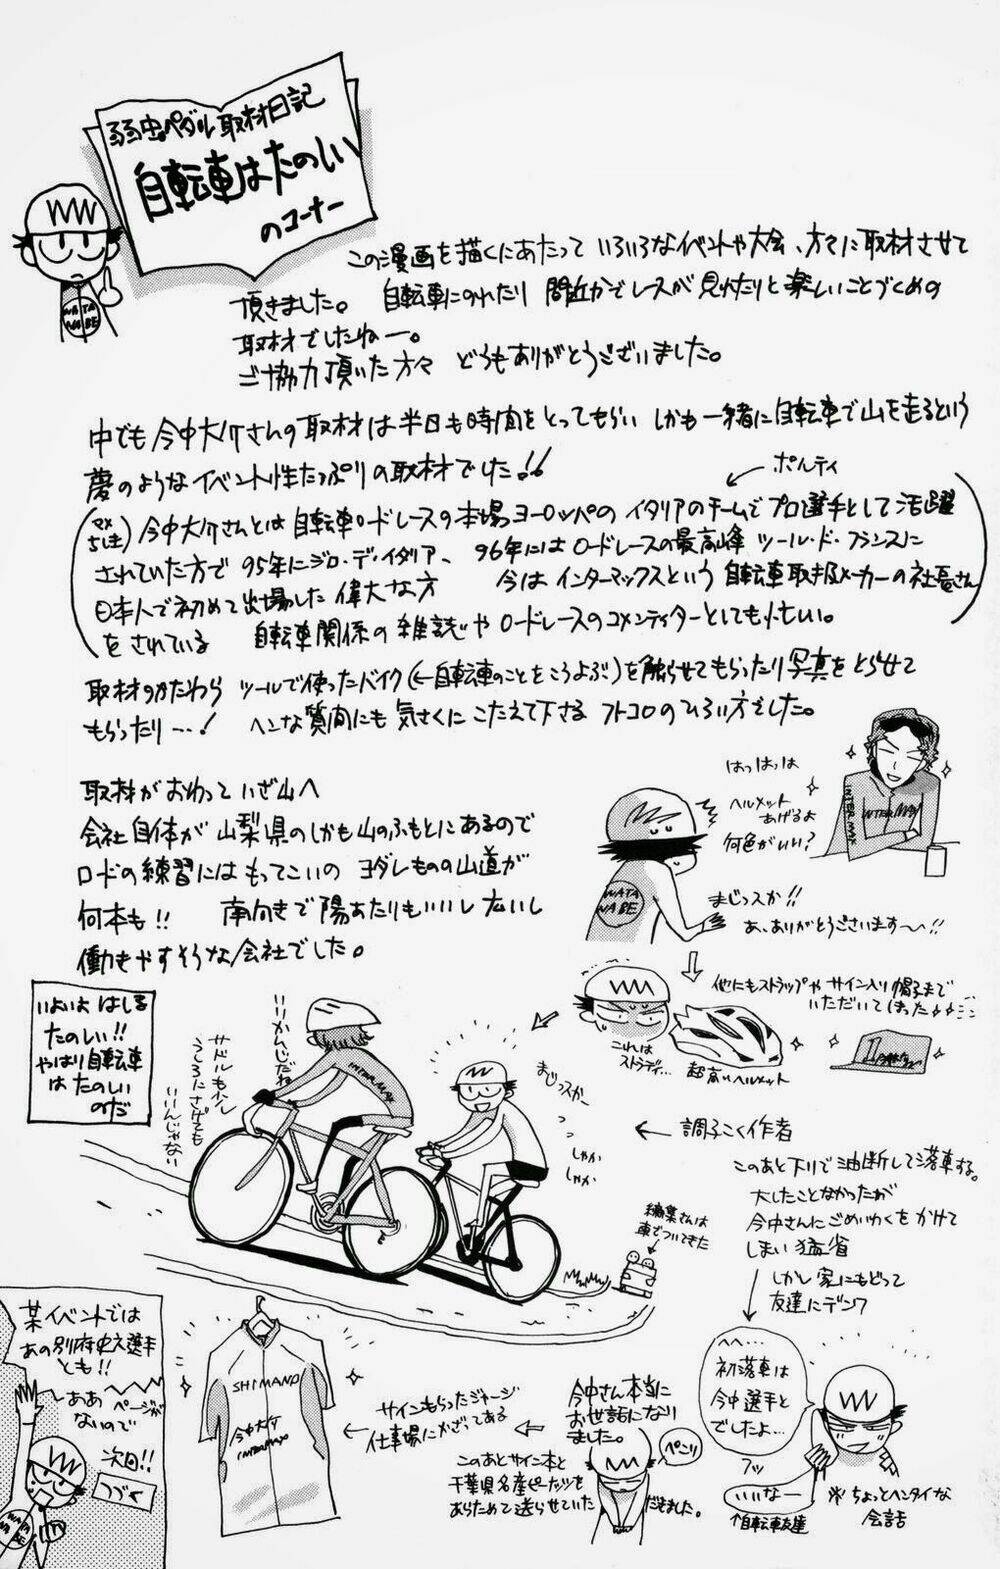 弱虫ペダル取材日記
自転車はたのしい
のコーナー
WATA
NABE
この漫画を描くにあたって いろいろなイベントや大会、方々に取材させて
頂きました。 自転車にのれたり 間近かでレースが見れたりと楽しいことづくめの
取材でしたねー。
ご協力頂いた方々 どうもありがとうございました。
中でも今中大介さんの取材は半日も時間をとってもらい しかも一緒に自転車で山を走るという
夢のようなイベント性たっぷりの取材でした!!
ポルティ
今中大介さんとは自転車ロードレースの本場ヨーロッパのイタリアのチームでプロ選手として活躍
されていた方で 95年にジロ・ディ・イタリア、 96年にはロードレースの最高峰 ツール・ド・フランスに
日本人で初めて出場した偉大な方 今はインターマックスという自転車取扱メーカーの社長さん
をされている 自転車関係の雑誌やロードレースのコメンテイターとしても忙しい。
取材のかたわら ツールで使ったバイク(←自転車のことをこうよぶ)を触らせてもらったり写真をとらせて
もらったり…! ヘンな質問にも気さくにこたえて下さる フトコロのひろい方でした。
取材がおわっていざ山へ
会社自体が山梨県のしかも山のふもとにあるので
ロードの練習にはもってこいの ヨダレものの山道が
何本も!! 南向きで陽あたりもいいし広いし
働きやすそうな会社でした。
はっはっは
ヘルメット
あげるよ
何色がいい?
INTERMAX
INTERMAX
WATA
NABE
まじっスか!!
あ、ありがとうございます〜〜!!
他にもストラップやサイン入り帽子まで
いただいてしまった
これは
ストラディ…
超高いヘルメット
いよいよ はしる
たのしい!!
やはり自転車
はたのしい
のだ
いいかんじだね
サドルもう少し
うしろにさげても
いいんじゃない
INTERMAX
まじっスかー
しゃか
しゃか
← 調子こく作者
編集さんは
車でついてきた
このあと下りで油断して落車する。
大したことなかったが
今中さんにごめいわくをかけて
しまい猛省
しかし家にもどって
友達にデンワ
へへ…
初落車は
今中選手と
でしたよ…
フッ
いいなー
↑自転車友達
※ちょっとヘンタイな
会話
今中さん本当に
お世話になり
ました。
ペこり
このあとサイン本と
千葉県名産ピーナッツを
あらためて送らせていただきました。
サインもらったジャージ
仕事場にかざってある
SHIMANO
今中大介
INTERMAX
某イベントでは
あの別府史之選手
とも!!
ああ ページが
ないので
次回!!
つづく
WATA
NABE